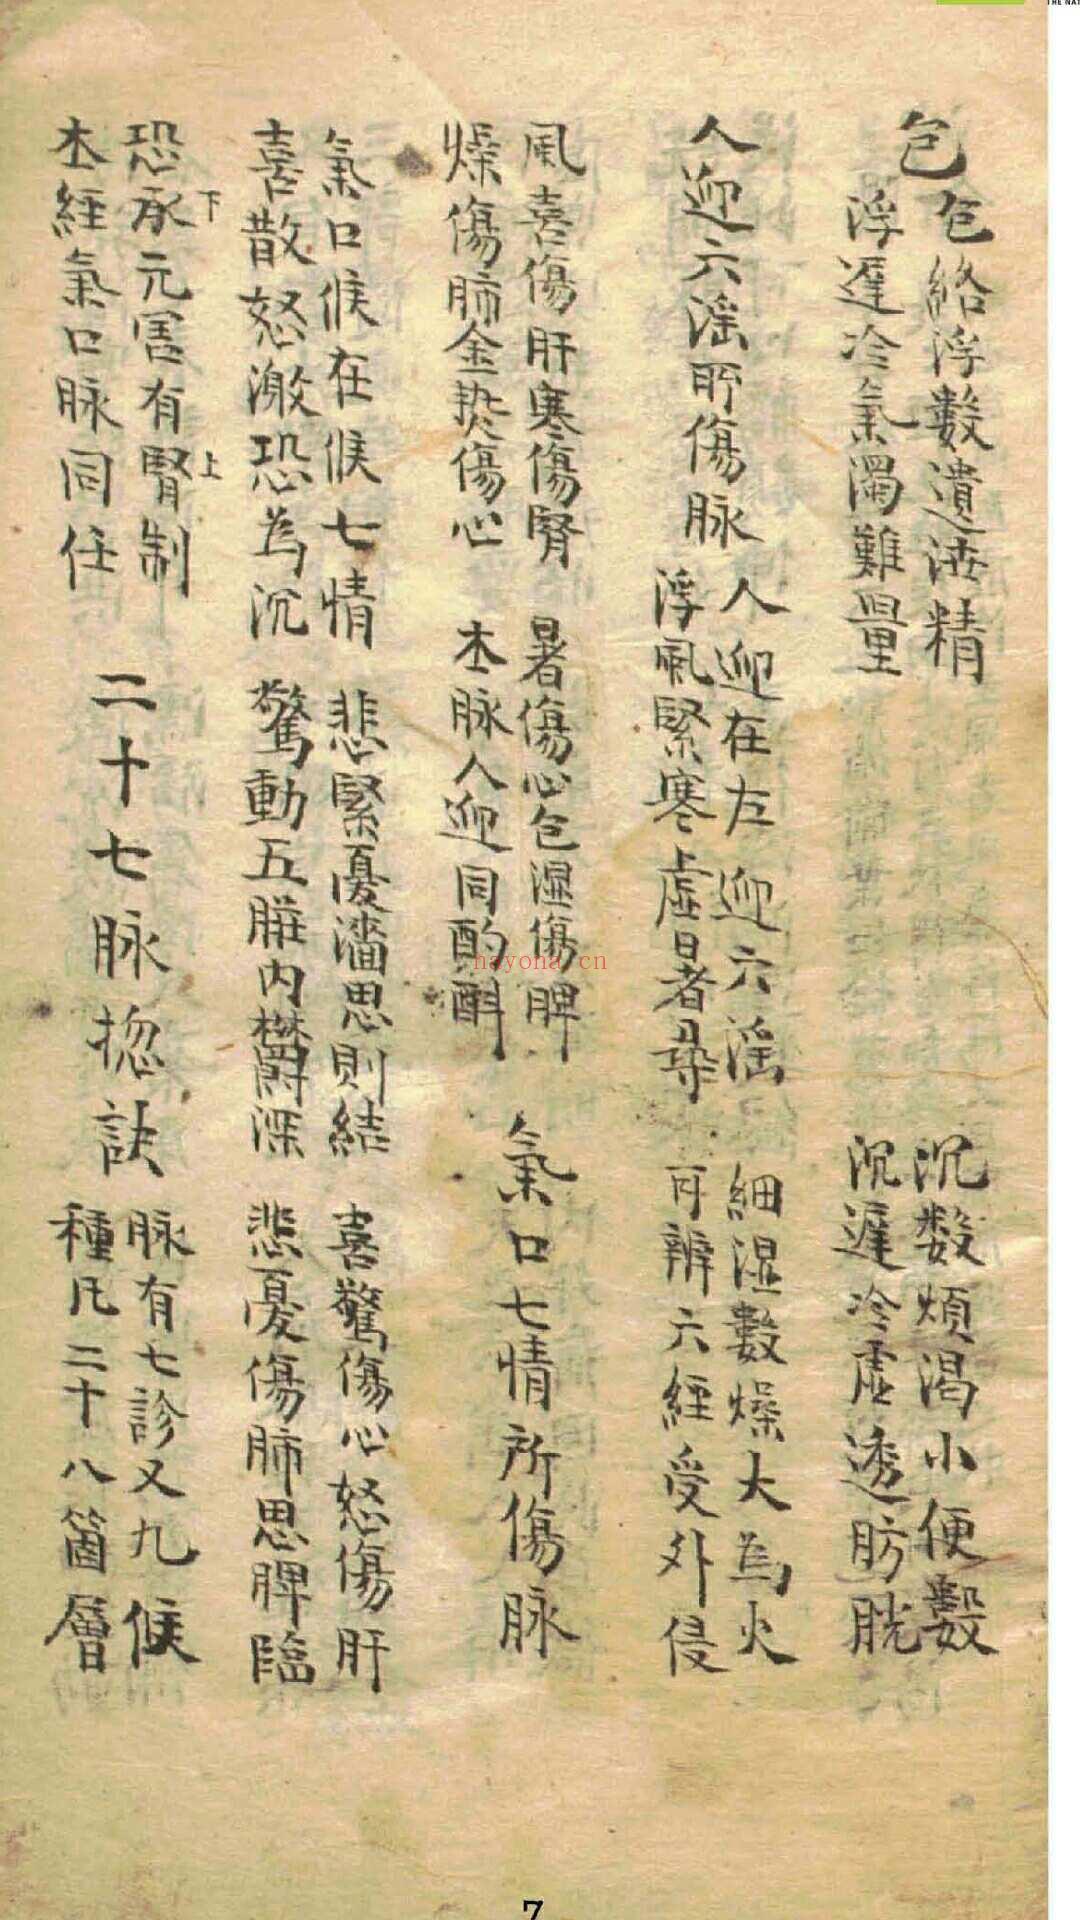 包
包絡浮數遺泄精
浮遲冷氣濁難量
沉数煩渴小便數
沉遲冷虛透膀胱
人迎六淫所傷脉
人迎在左迎六淫
浮風緊寒虛暑尋
細湿數燥大為火
可辨六經受外侵
風喜傷肝寒傷腎
燥傷肺金热傷心
暑傷心包湿傷脾
本脉人迎同酌斟
氣口七情所傷脉
氣口候在候七情
喜散怒激恐為沉
悲緊憂濇思則結
驚動五臟内欝深
喜驚傷心怒傷肝
悲憂傷肺思脾臨
恐承元害有腎制
下
上
本經氣口脉同任
二十七脉捴訣
脉有七診又九候
種凡二十八箇層
hayona.cn
THE NAT
7